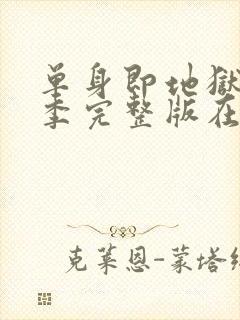 单身即地獄
季完整版在
克莱恩-蒙塔